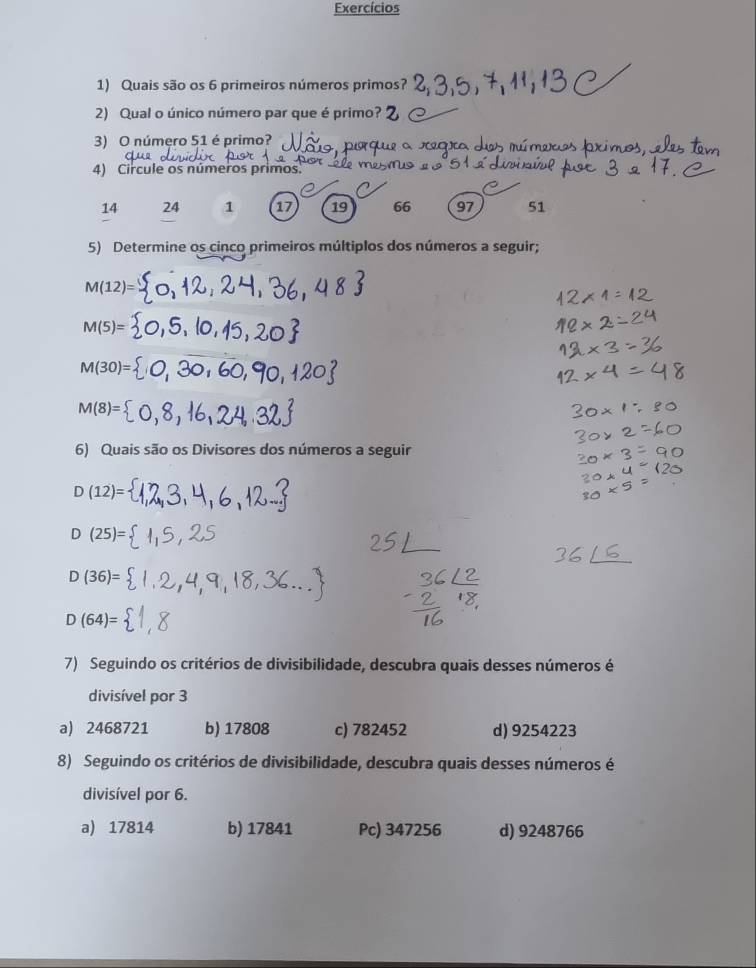 Exercícios
1) Quais são os 6 primeiros números primos? 2, 3, 5, 7, 11, 13 C
2) Qual o único número par que é primo? 2 C
3) O número 51 é primo? Não, porque a regra dos números primos, eles tem
que dividir por 1 e por ele mesmo e o 51 é divisível por 3 e 17. C
4) Circule os números primos.
14 24 1 17 C 19 C 66 97 C 51
5) Determine os cinco primeiros múltiplos dos números a seguir;
M(12)= {0, 12, 24, 36, 48}
12 x 1 = 12
M(5)= {0, 5, 10, 15, 20}
12 x 2 = 24
12 x 3 = 36
M(30)= {0, 30, 60, 90, 120}
12 x 4 = 48
M(8)= {0, 8, 16, 24, 32}
30 x 1 = 30
30 x 2 = 60
6) Quais são os Divisores dos números a seguir
30 x 3 = 90
30 x 4 = 120
30 x 5 =
D (12)= {1, 2, 3, 4, 6, 12...}
D (25)= { 1, 5, 25
25
36 6
D (36)= { 1, 2, 4, 9, 18, 36...}
36 2
- 2 18,
16
D (64)= {1, 8
7) Seguindo os critérios de divisibilidade, descubra quais desses números é
divisível por 3
a) 2468721 b) 17808 c) 782452 d) 9254223
8) Seguindo os critérios de divisibilidade, descubra quais desses números é
divisível por 6.
a) 17814 b) 17841 Pc) 347256 d) 9248766